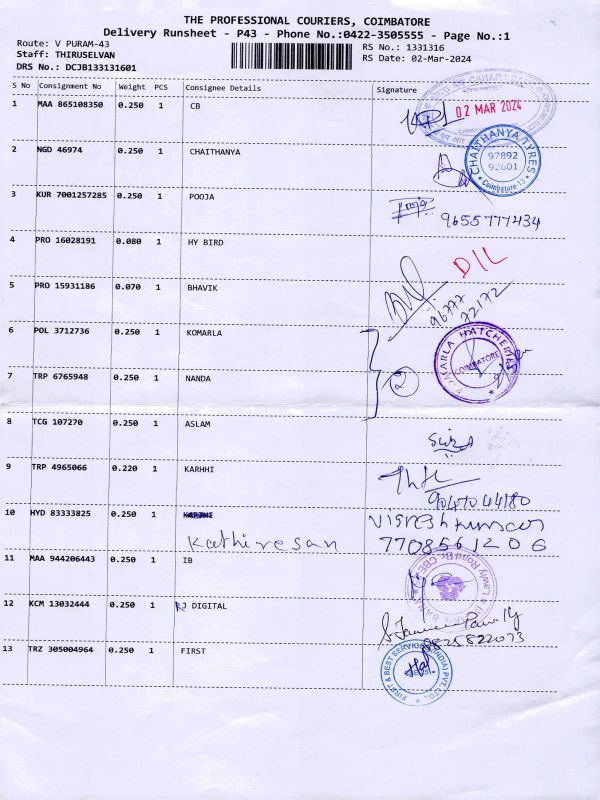 THE PROFESSIONAL COURIERS, COIMBATORE
Delivery Runsheet - P43 - Phone No.:0422-3505555 - Page No.:1
Route: V PURAM-43
Staff: THIRUSELVAN
DRS No.: DCJB133131601
RS No.: 1331316
RS Date: 02-Mar-2024
S No Consignment No Weight PCS Consignee Details Signature
1 MAA 865108350 0.250 1 CB
02 MAR 2024
2 NGD 46974 0.250 1 CHAITHANYA
CHAITHANYA TYRES
97892
92601
Coimbatore 13
3 KUR 7001257285 0.250 1 POOJA
Pooja
9655777434
4 PRO 16028191 0.080 1 HY BIRD
D/L
5 PRO 15931186 0.070 1 BHAVIK
96777
72172
6 POL 3712736 0.250 1 KOMARLA
KOMARLA HATCHERIES
COIMBATORE
7 TRP 6765948 0.250 1 NANDA
2
8 TCG 107270 0.250 1 ASLAM
9 TRP 4965066 0.220 1 KARHHI
9047044180
10 HYD 83333825 0.250 1
Kathiresan
7708561206
11 MAA 944206443 0.250 1 IB
12 KCM 13032444 0.250 1 RJ DIGITAL
8825822073
13 TRZ 305004964 0.250 1 FIRST
FIRST & BEST SERVICES (INDIA) PVT. LTD.